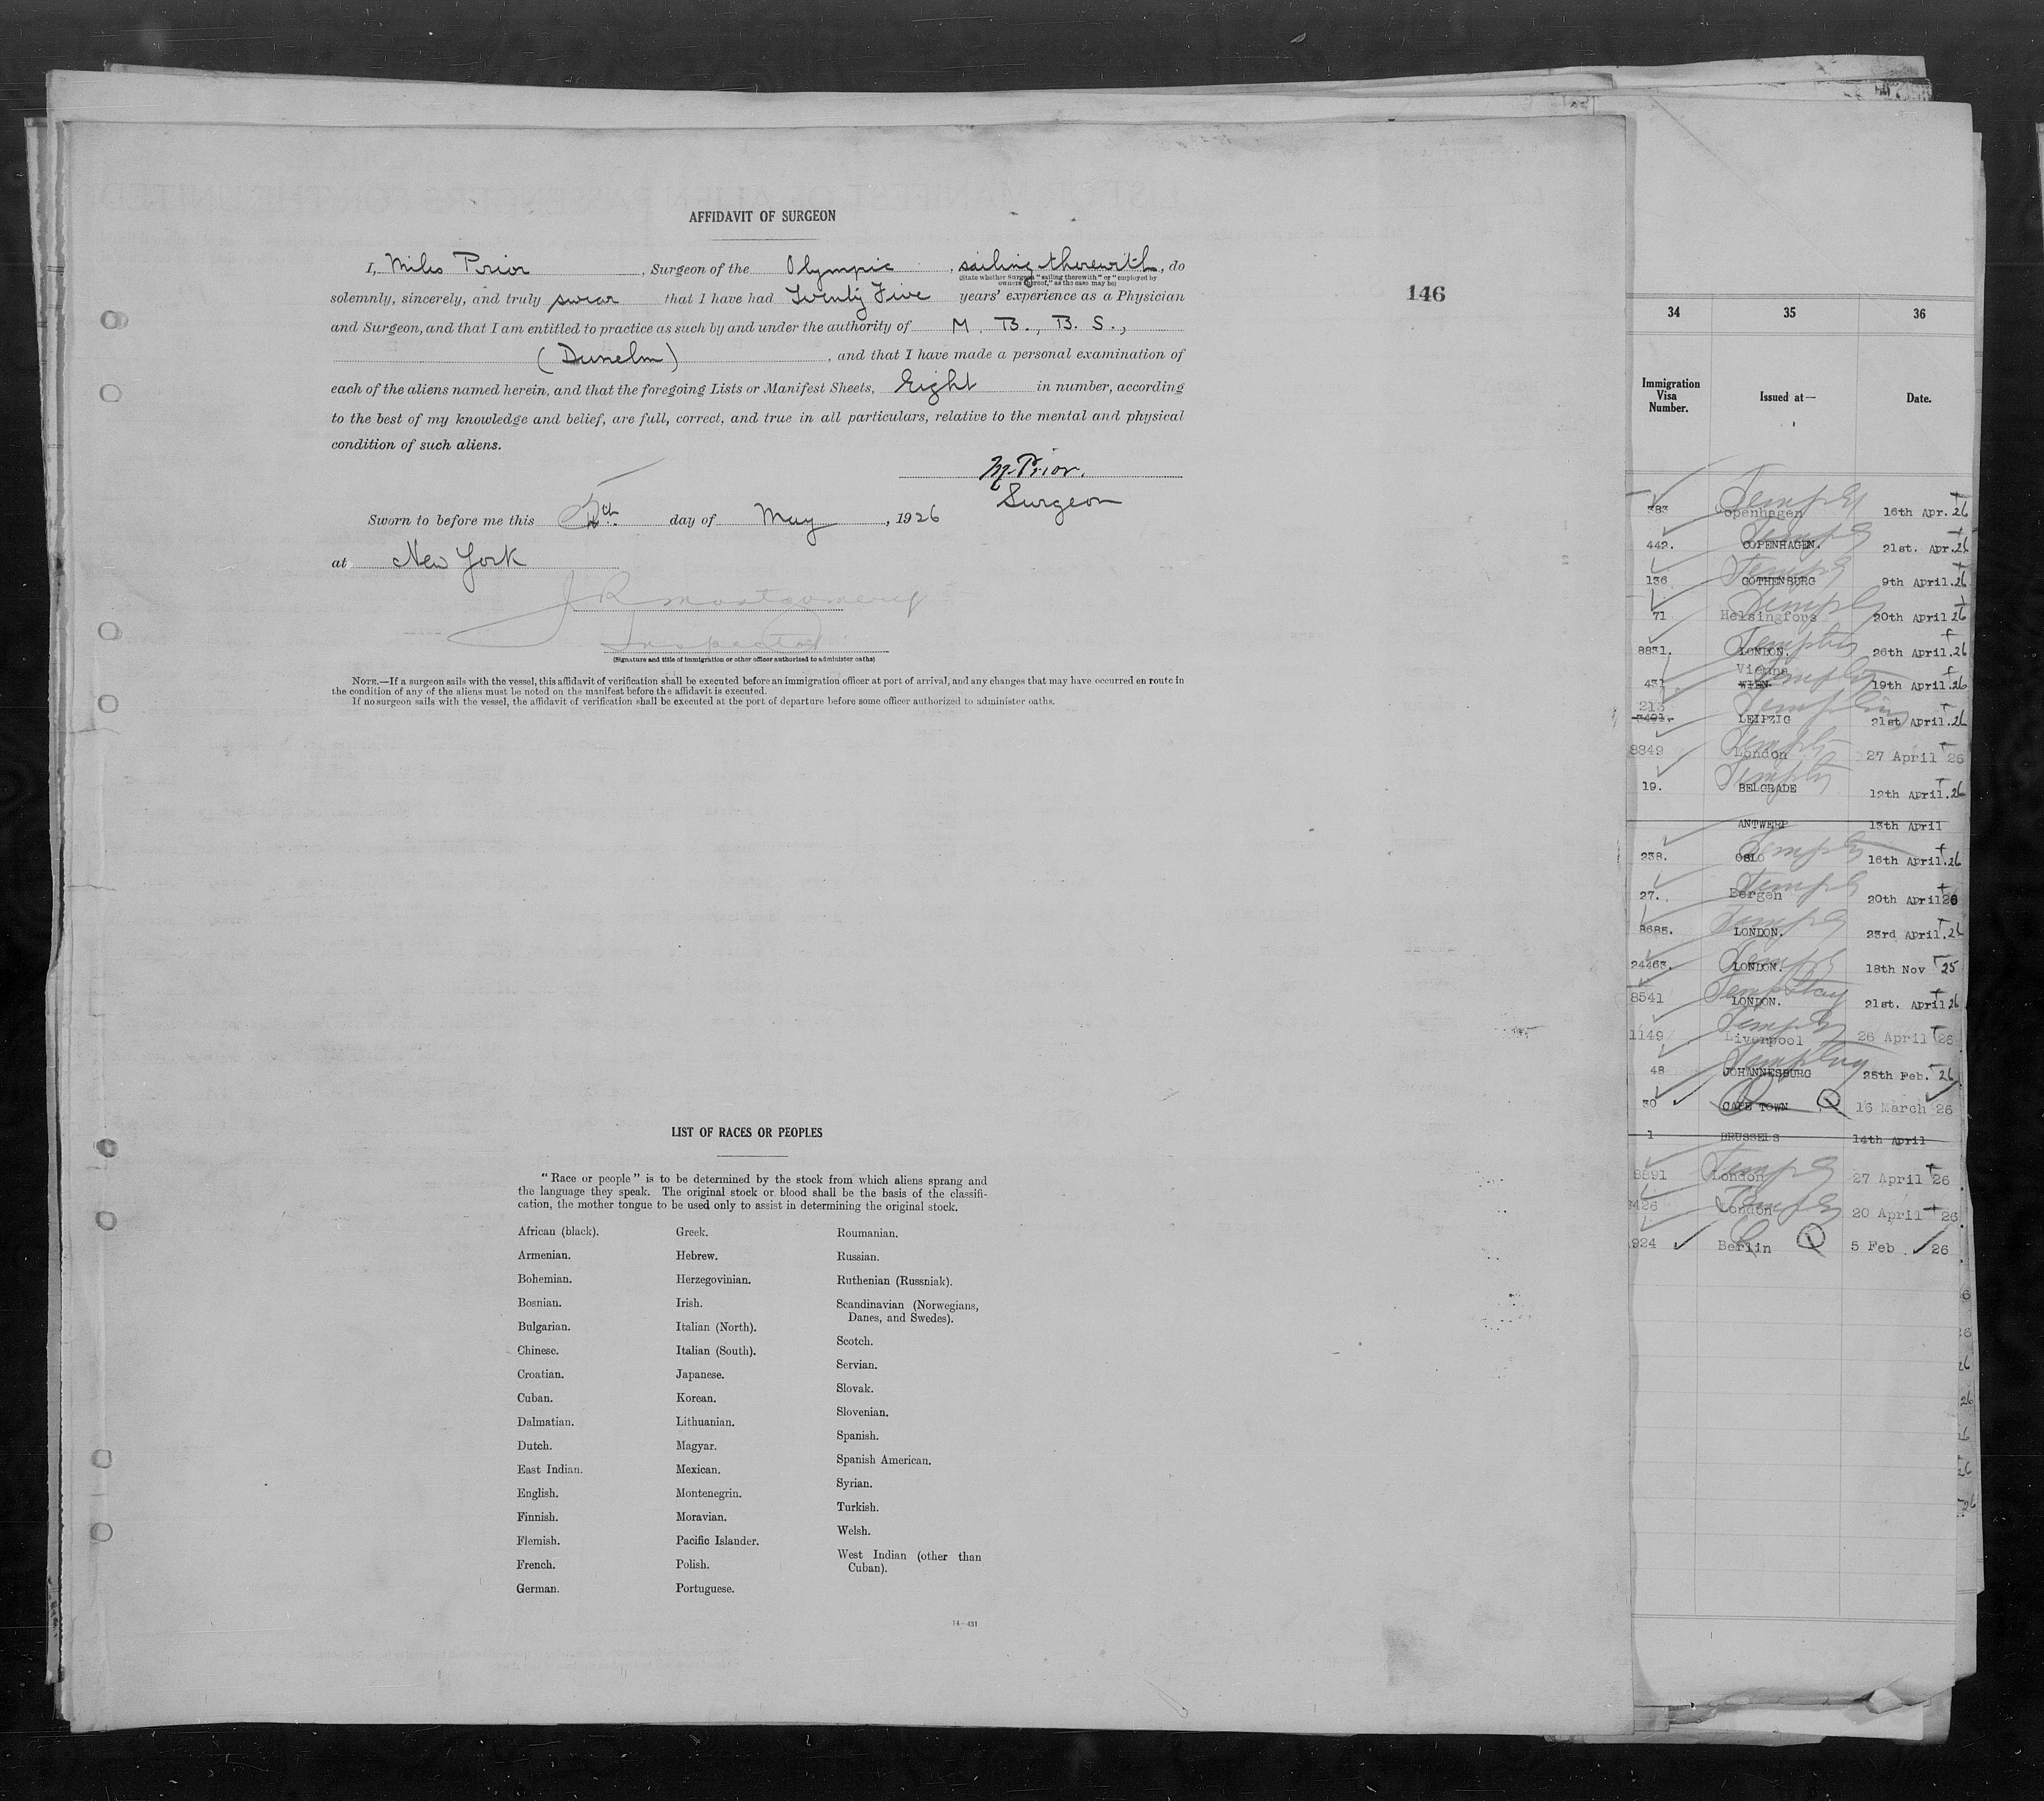 AFFIDAVIT OF SURGEON
I, Miles Prior, Surgeon of the Olympic, sailing therewith, do
(State whether Surgeon "sailing therewith" or "employed by
owners thereof," as the case may be)
solemnly, sincerely, and truly swear that I have had Twenty Five years' experience as a Physician
and Surgeon, and that I am entitled to practice as such by and under the authority of M. B., B. S.,
(Dunelm), and that I have made a personal examination of
each of the aliens named herein, and that the foregoing Lists or Manifest Sheets, Eight in number, according
to the best of my knowledge and belief, are full, correct, and true in all particulars, relative to the mental and physical
condition of such aliens.
M. Prior.
Surgeon
Sworn to before me this 5th day of May, 1926
at New York
J R Montgomery
Inspector
(Signature and title of immigration or other officer authorized to administer oaths)
NOTE.—If a surgeon sails with the vessel, this affidavit of verification shall be executed before an immigration officer at port of arrival, and any changes that may have occurred en route in
the condition of any of the aliens must be noted on the manifest before the affidavit is executed.
If no surgeon sails with the vessel, the affidavit of verification shall be executed at the port of departure before some officer authorized to administer oaths.
146
LIST OF RACES OR PEOPLES
"Race or people" is to be determined by the stock from which aliens sprang and
the language they speak. The original stock or blood shall be the basis of the classifi-
cation, the mother tongue to be used only to assist in determining the original stock.
African (black).
Armenian.
Bohemian.
Bosnian.
Bulgarian.
Chinese.
Croatian.
Cuban.
Dalmatian.
Dutch.
East Indian.
English.
Finnish.
Flemish.
French.
German.
Greek.
Hebrew.
Herzegovinian.
Irish.
Italian (North).
Italian (South).
Japanese.
Korean.
Lithuanian.
Magyar.
Mexican.
Montenegrin.
Moravian.
Pacific Islander.
Polish.
Portuguese.
Roumanian.
Russian.
Ruthenian (Russniak).
Scandinavian (Norwegians,
Danes, and Swedes).
Scotch.
Servian.
Slovak.
Slovenian.
Spanish.
Spanish American.
Syrian.
Turkish.
Welsh.
West Indian (other than
Cuban).
14—431
34 35 36
Immigration
Visa
Number.
Issued at—
Date.
383 Copenhagen 16th Apr. 26
442. COPENHAGEN. 21st. Apr. 26
136 GOTHENBURG 9th April. 26
71 Helsingfors 20th April 26
8831. LONDON. 26th April. 26
Vienna
431 WIEN 19th April. 26
213
LEIPZIG 21st April. 26
8849 London 27 April 26
19. BELGRADE 12th April. 26
ANTWERP 13th April
238. OSLO 16th April. 26
27. Bergen 20th April 26
8685. LONDON. 23rd April. 26
24463. LONDON. 18th Nov 25
8541 LONDON. 21st. April 26
1149 Liverpool 26 April 26
48 JOHANNESBURG 25th Feb. 26
30 CAPE TOWN 16 March 26
1 BRUSSELS 14th April
8891 London 27 April 26
8426 London 20 April 26
924 Berlin 5 Feb 26